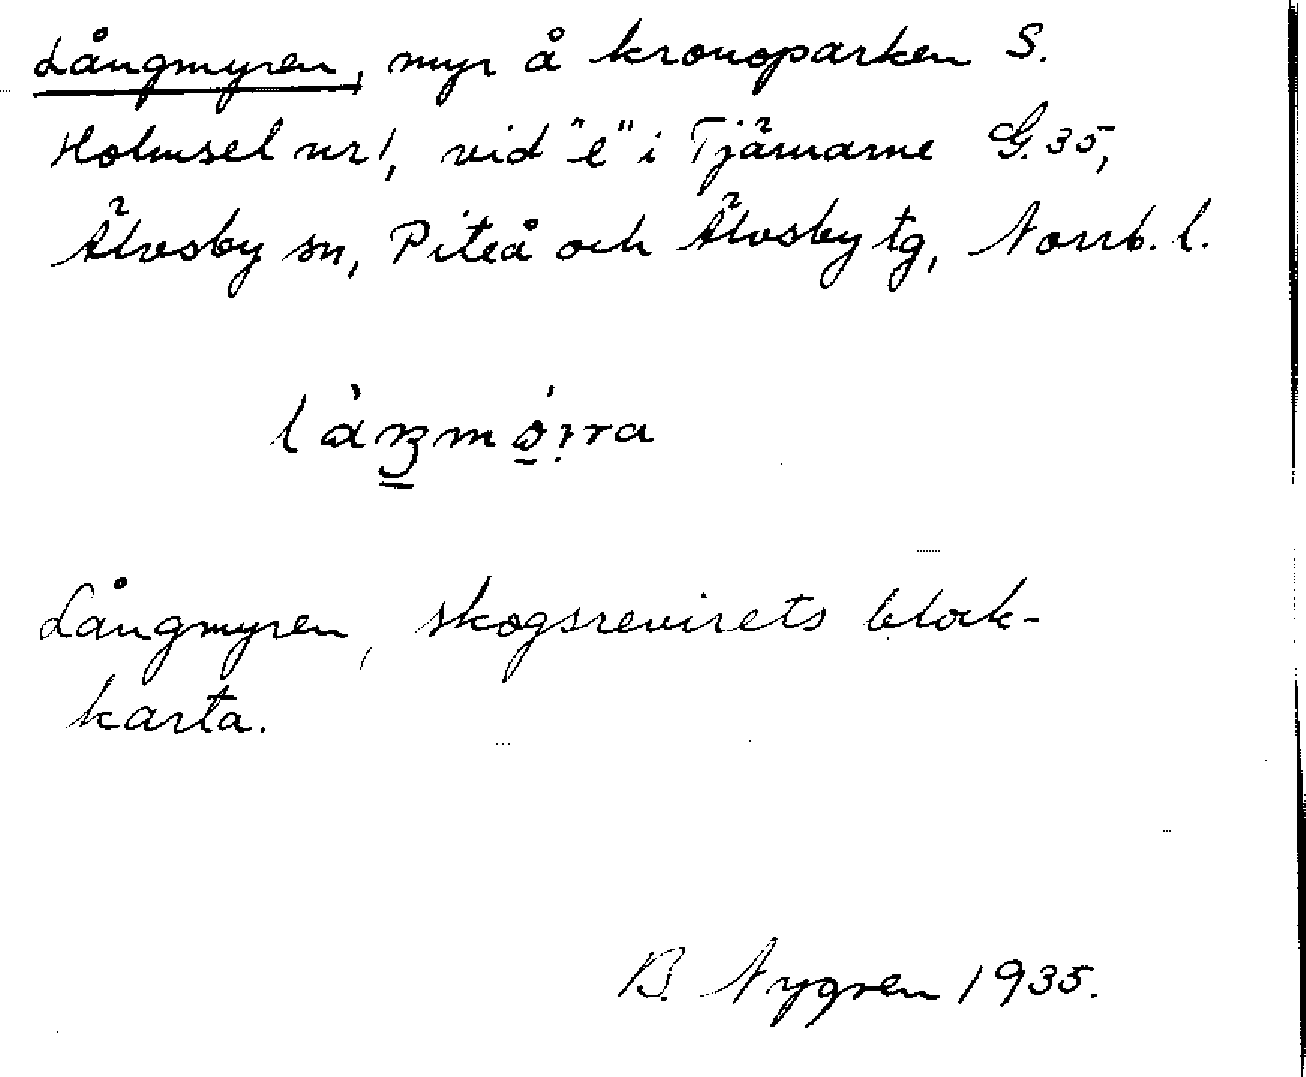 Långmyren, myr å kronoparken S.
Holmsel nr 1, vid "e" i Tjärnarne G. 35,
Älvsby sn, Piteå och Älvsby tg, Norrb. l.
Långmyren, skogsrevirets block-
karta.
B. Nygren 1935.